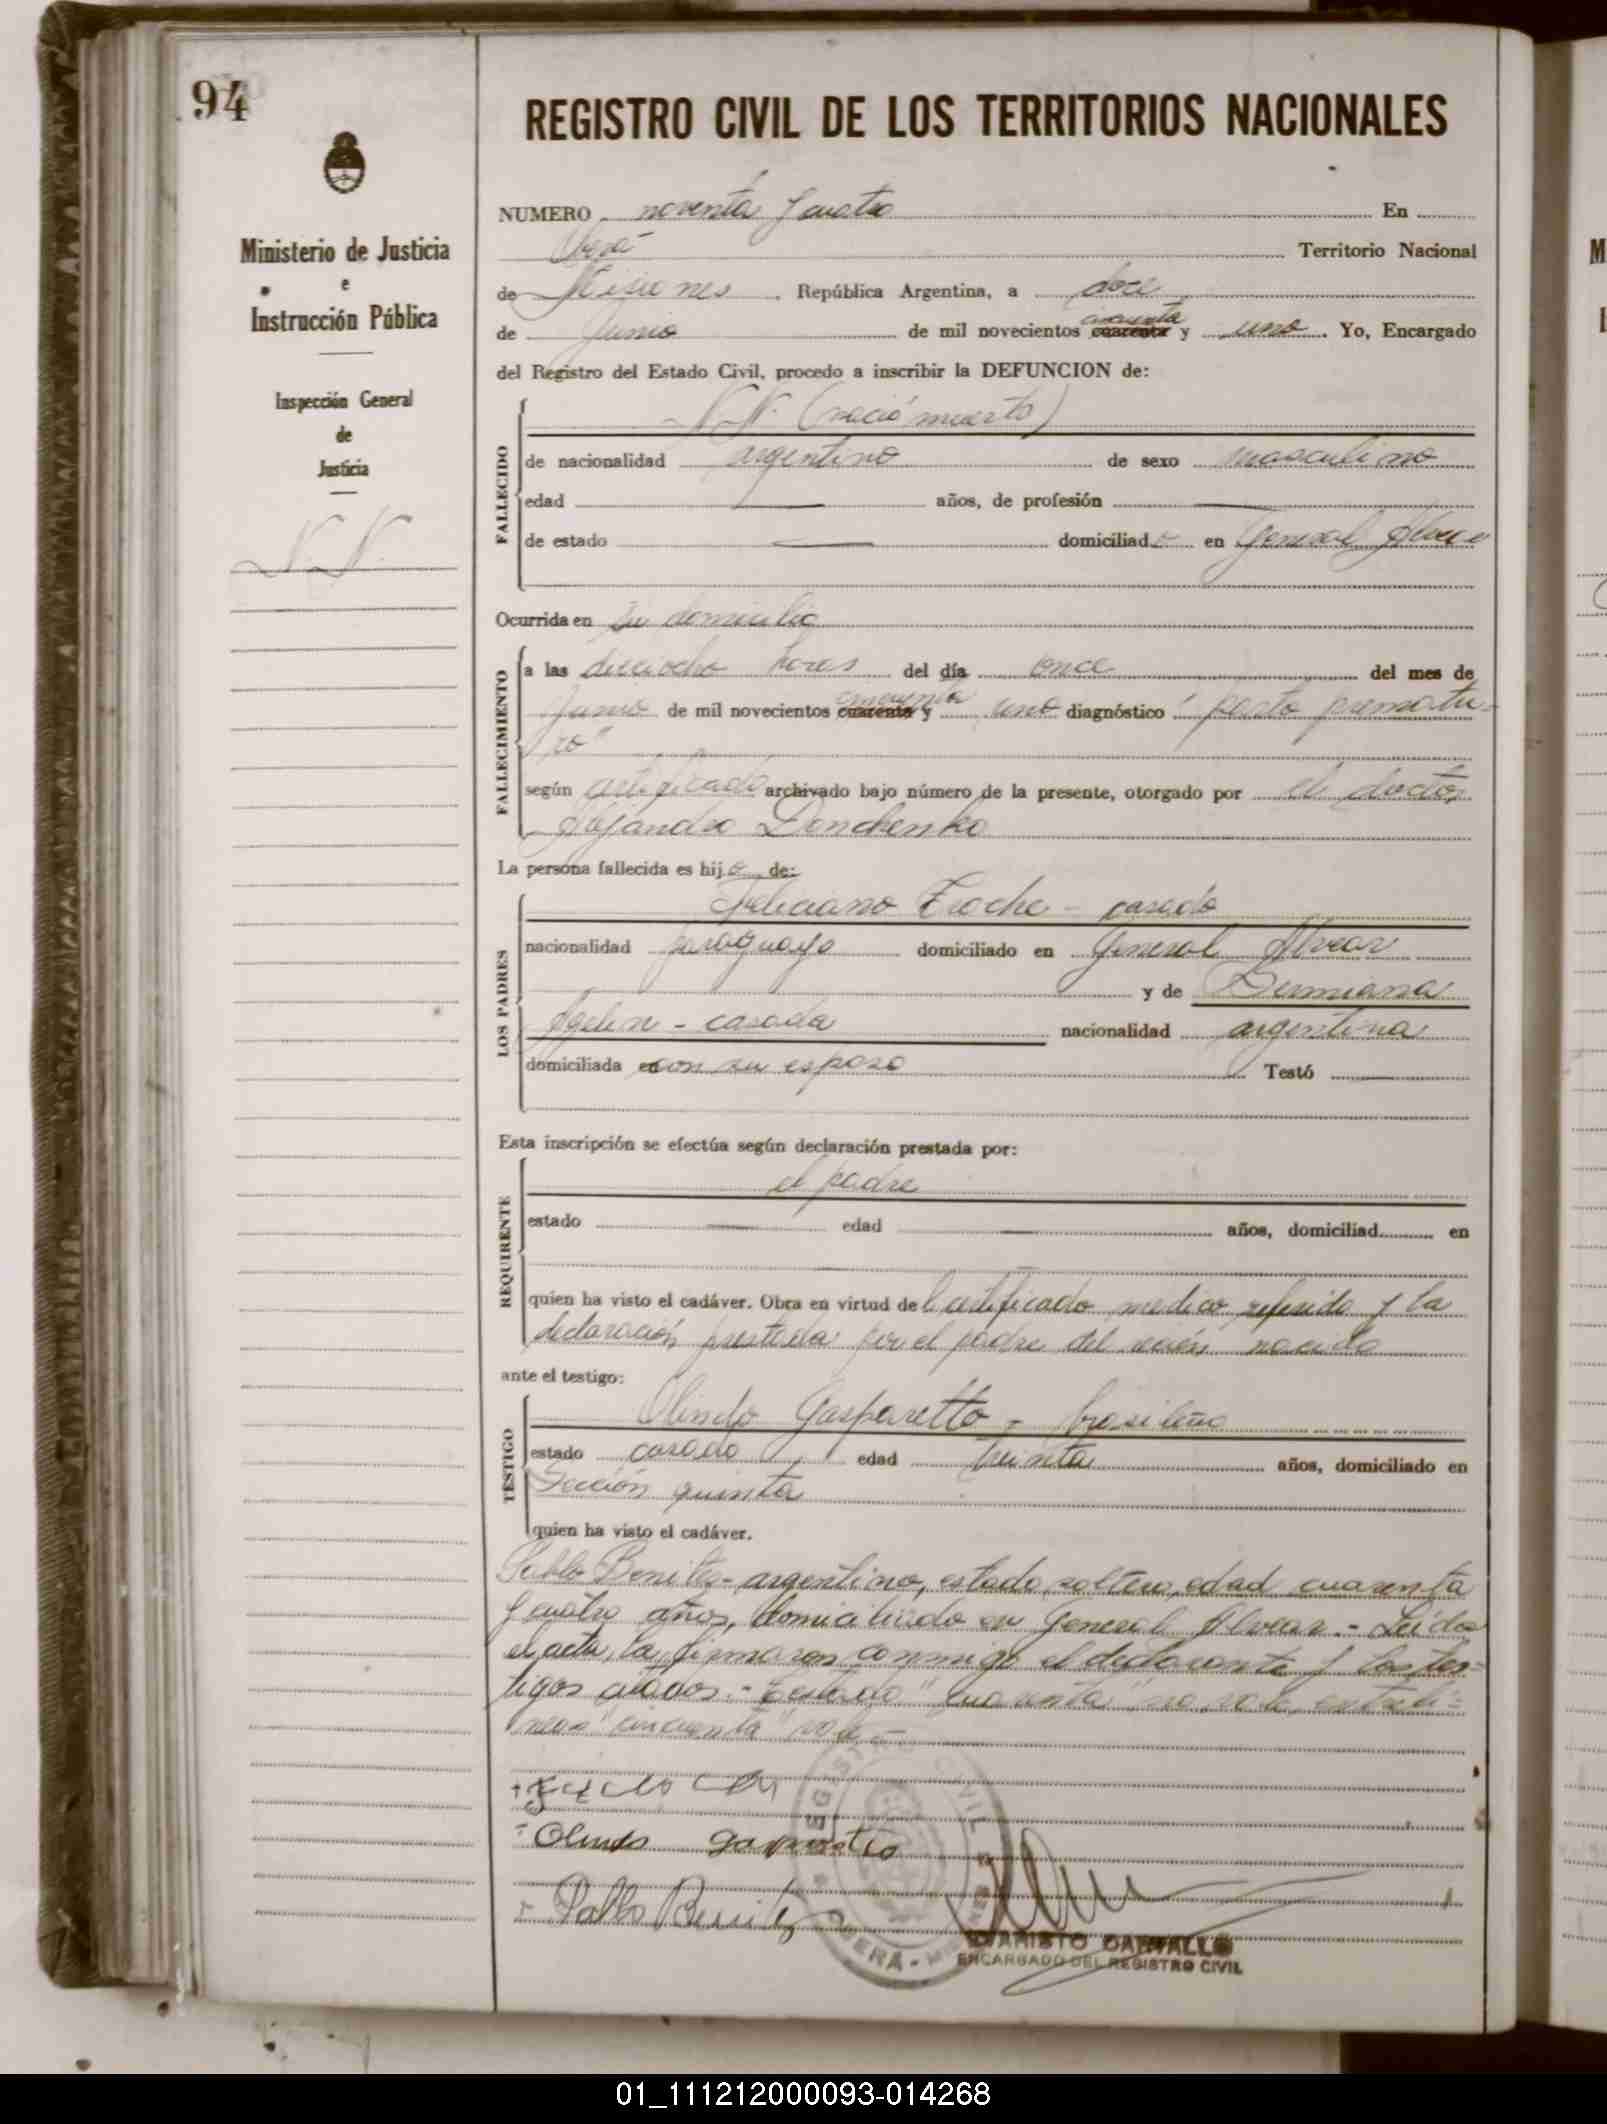 94
REGISTRO CIVIL DE LOS TERRITORIOS NACIONALES
Ministerio de Justicia
e
Instrucción Pública
Inspección General
de
Justicia
N. N.
NUMERO noventa y cuatro En
Oberá Territorio Nacional
de Misiones. República Argentina, a doce
de Junio de mil novecientos cuarenta cincuenta y uno. Yo, Encargado
del Registro del Estado Civil, procedo a inscribir la DEFUNCION de:
FALLECIDO
N N. (nació muerto)
de nacionalidad argentino de sexo masculino
edad — años, de profesión —
de estado — domiciliado en General Alvear
Ocurrida en su domicilio
FALLECIMIENTO
a las dieciocho horas del día once del mes de
Junio de mil novecientos cuarenta cincuenta y uno diagnóstico "parto prematu-
ro"
según certificado archivado bajo número de la presente, otorgado por el doctor
Alejandro Donchenko
La persona fallecida es hijo de:
LOS PADRES
Feliciano Troche - casado
nacionalidad paraguayo domiciliado en General Alvear
y de Dumiana
- casada nacionalidad argentina
domiciliada en con su esposo Testó —
Esta inscripción se efectúa según declaración prestada por:
REQUIRENTE
el padre
estado — edad — años, domiciliad en
—
quien ha visto el cadáver. Obra en virtud del certificado medico referido y la
declaración prestada por el padre del recién nacido
ante el testigo:
TESTIGO
Olindo Gasparetto - brasileño
estado casado edad treinta años, domiciliado en
Sección quinta
quien ha visto el cadáver.
Pablo Benitez - argentino, estado soltero, edad cuarenta
y cuatro años, domiciliado en General Alvear. - Leída
el acta, la firmaron conmigo el declarante y los tes-
tigos citados. - Testado "cuarenta" no vale, entreli-
neas "cincuenta" vale. -
Olindo gasparetto
Pablo Benitez
REGISTRO CIVIL
OBERÁ -
EVARISTO CARVALLO
ENCARGADO DEL REGISTRO CIVIL
01_111212000093-014268